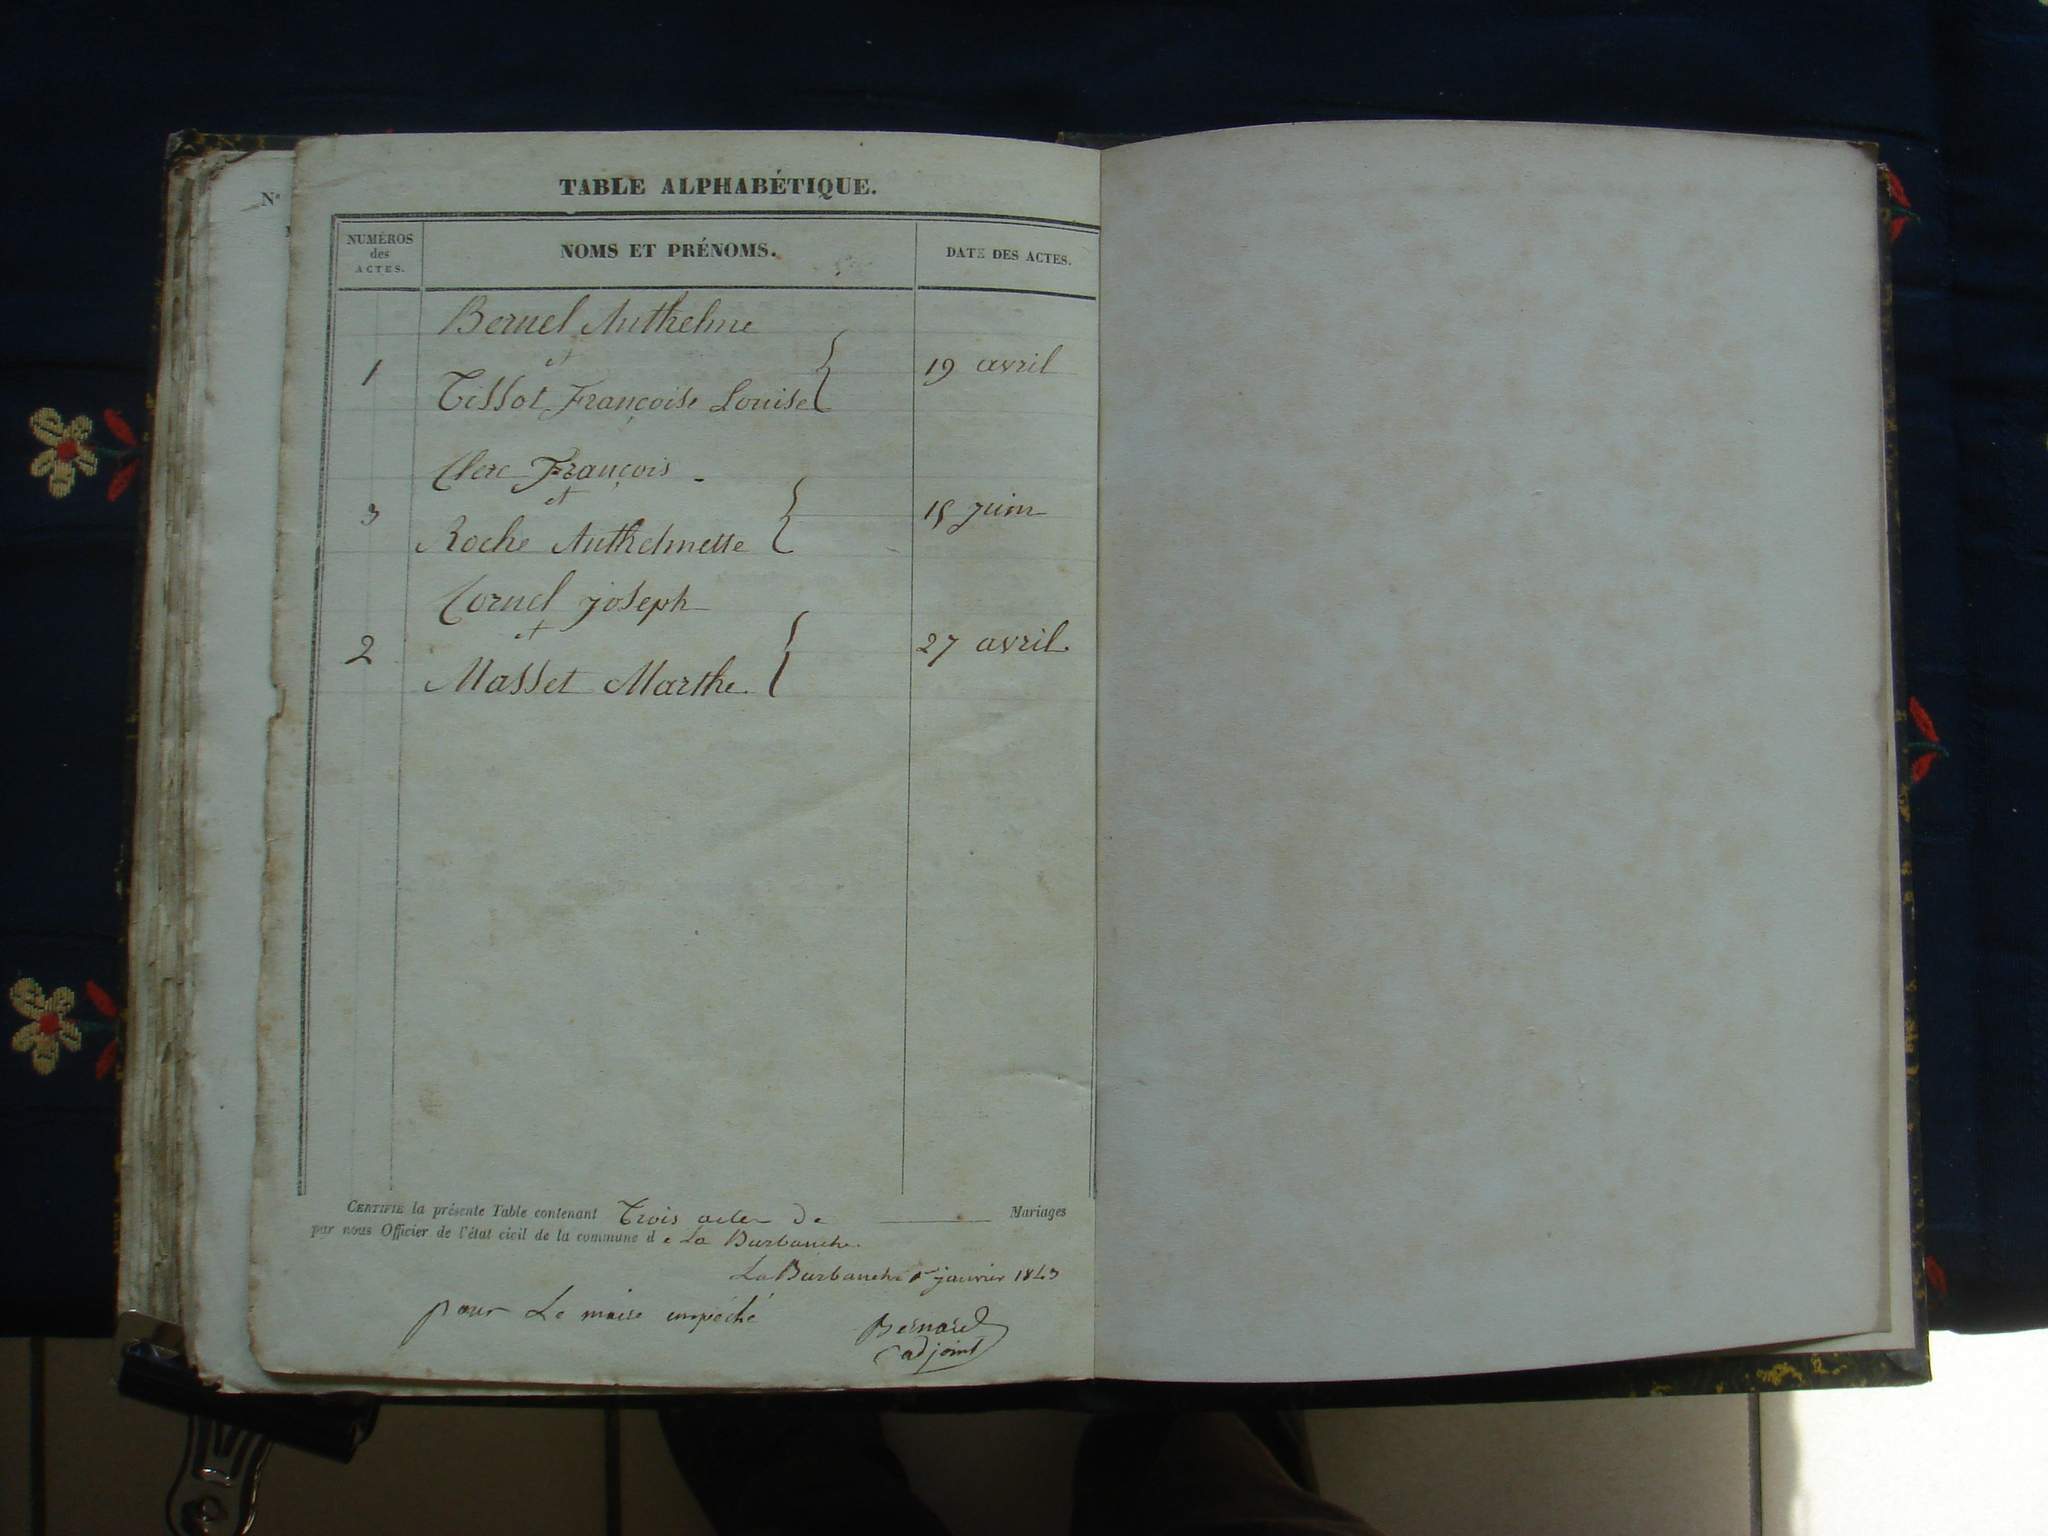 N°
TABLE ALPHABÉTIQUE.
NUMÉROS
des
ACTES.
NOMS ET PRÉNOMS.
DATE DES ACTES.
Bernel Anthelme
et
1
19 avril
Tissot Françoise Louise
Clerc François
et
3
15 juin
Roche Anthelmette
Cornel joseph
et
2
27 avril
Masset Marthe
CERTIFIE la présente Table contenant Trois actes de Mariages
par nous Officier de l'état civil de la commune de La Burbanche
La Burbanche 1er janvier 1843
pour Le maire empêché
Bernard
adjoint